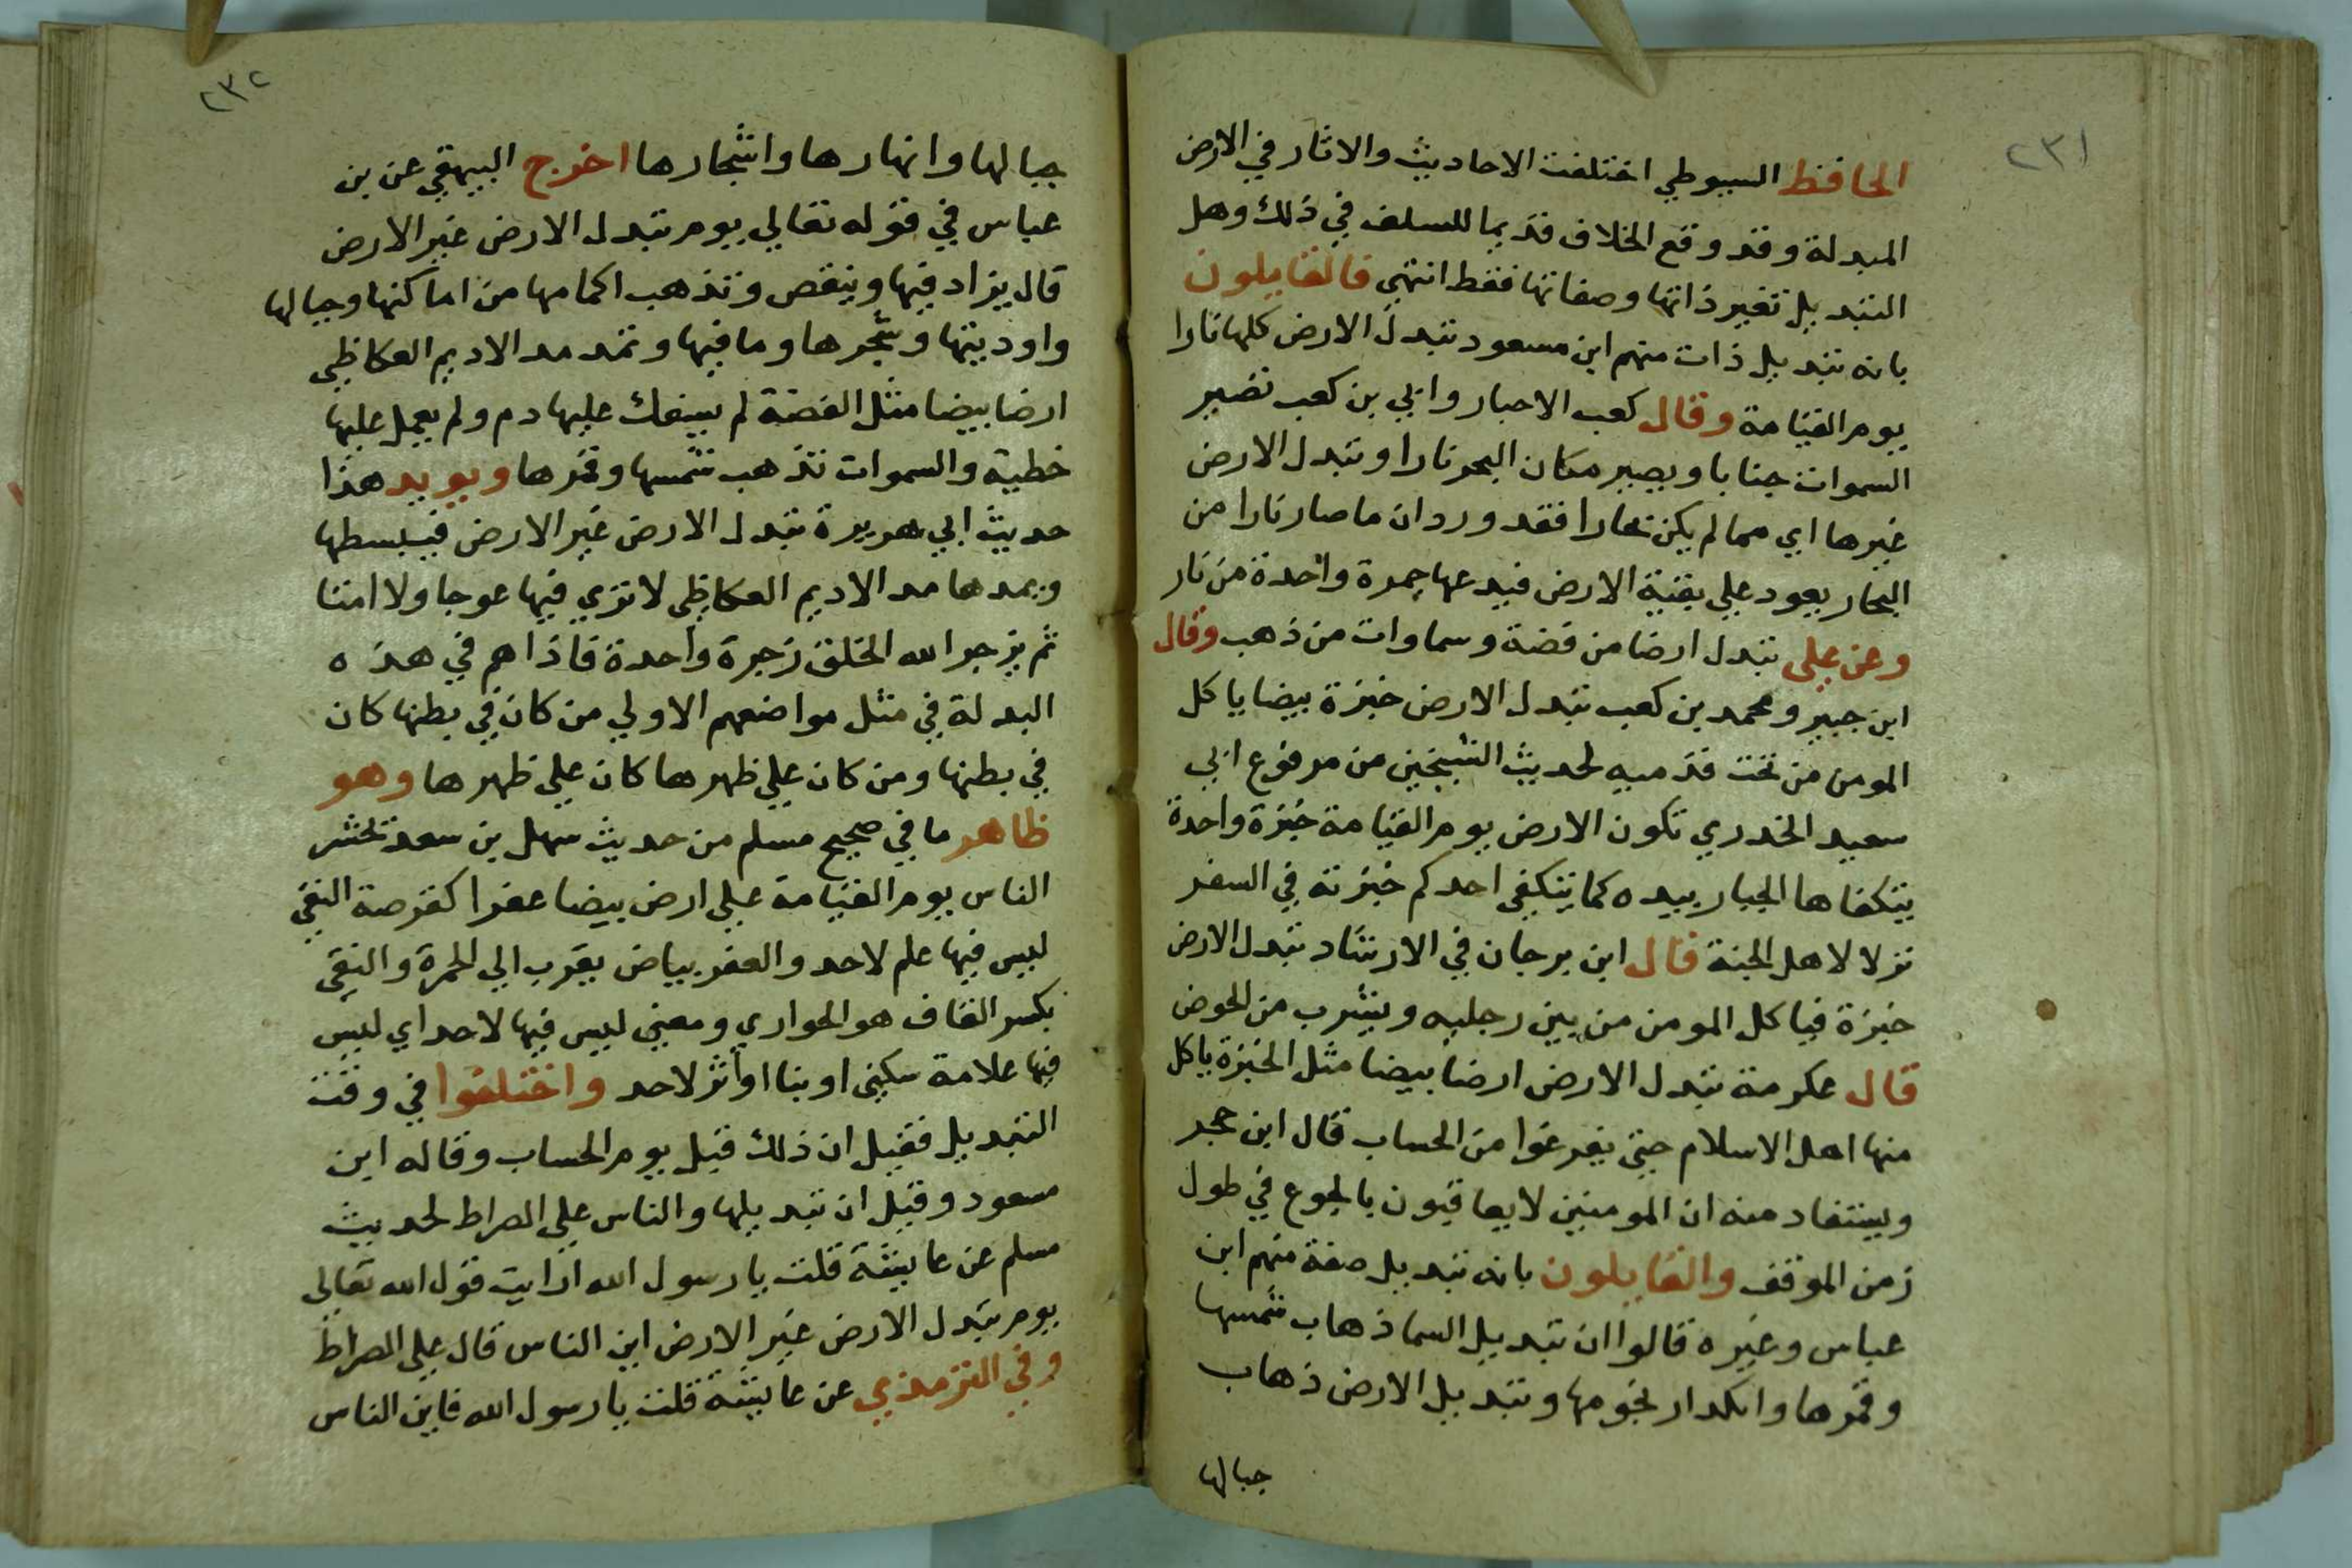 ٢٣١
الحافظ السيوطي اختلفت الاحاديث والاثار في الارض
المبدلة وقد وقع الخلاف قديما للسلف في ذلك وهل
التبديل تغير ذاتها وصفاتها فقط انتهي فالقايلون
بانه تبديل ذات منهم ابن مسعود تبدل الارض كلها نارا
يوم القيامة وقال كعب الاحبار وابي بن كعب تصير
السموات جنابا ويصير مكان البحر نارا وتبدل الارض
غيرها اي مما لم يكن بحارا فقد ورد ان ما صار نارا من
البحار يعود علي بقية الارض فيدعها جمرة واحدة من نار
وعن علي تبدل ارضا من فضة وسماوات من ذهب وقال
ابن جبير ومحمد بن كعب تبدل الارض خبزة بيضا ياكل
المومن من تحت قدميه لحديث الشيخين من مرفوع ابي
سعيد الخدري تكون الارض يوم القيامة خبزة واحدة
يتكفاها الجبار بيده كما يتكفي احدكم خبزته في السفر
نزلا لاهل الجنة قال ابن برجان في الارشاد تبدل الارض
خبزة فياكل المومن من بين رجليه ويشرب من الحوض
قال عكرمة تبدل الارض ارضا بيضا مثل الخبزة ياكل
منها اهل الاسلام حتي يفرغوا من الحساب قال ابن حجر
ويستفاد منه ان المومنين لا يعاقبون بالجوع في طول
زمن الموقف والقايلون بانه تبديل صفة منهم ابن
عباس وغيره قالوا ان تبديل السما ذهاب شمسها
وقمرها وانكدار نجومها وتبديل الارض ذهاب
جبالها
٢٣٢
جبالها وانهارها واشجارها اخرج البيهقي عن بن
عباس في قوله تعالي يوم تبدل الارض غير الارض
قال يزاد فيها وينقص وتذهب اكمامها من اماكنها وجبالها
واوديتها وشجرها وما فيها وتمد مد الاديم العكاظي
ارضا بيضا مثل الفضة لم يسفك عليها دم ولم يعمل عليها
خطية والسموات تذهب شمسها وقمرها ويويد هذا
حديث ابي هريرة تبدل الارض غير الارض فيبسطها
ويمدها مد الاديم العكاظي لا تري فيها عوجا ولا امتا
ثم يزجر الله الخلق زجرة واحدة فاذا هم في هذه
البدلة في مثل مواضعهم الاولي من كان في بطنها كان
في بطنها ومن كان علي ظهرها كان علي ظهرها وهو
ظاهر ما في صحيح مسلم من حديث سهل بن سعد تحشر
الناس يوم القيامة علي ارض بيضا عفرا كقرصة النقي
ليس فيها علم لاحد والعفر بياض يقرب الي الحمرة والنقي
بكسر القاف هو الحواري ومعني ليس فيها لاحد اي ليس
فيها علامة سكني او بنا او اثر لاحد واختلفوا في وقت
التبديل فقيل ان ذلك قبل يوم الحساب وقاله ابن
مسعود وقيل ان تبديلها والناس علي الصراط لحديث
مسلم عن عايشة قلت يا رسول الله ارايت قول الله تعالي
يوم تبدل الارض غير الارض اين الناس قال علي الصراط
وفي الترمذي عن عايشة قلت يا رسول الله فاين الناس